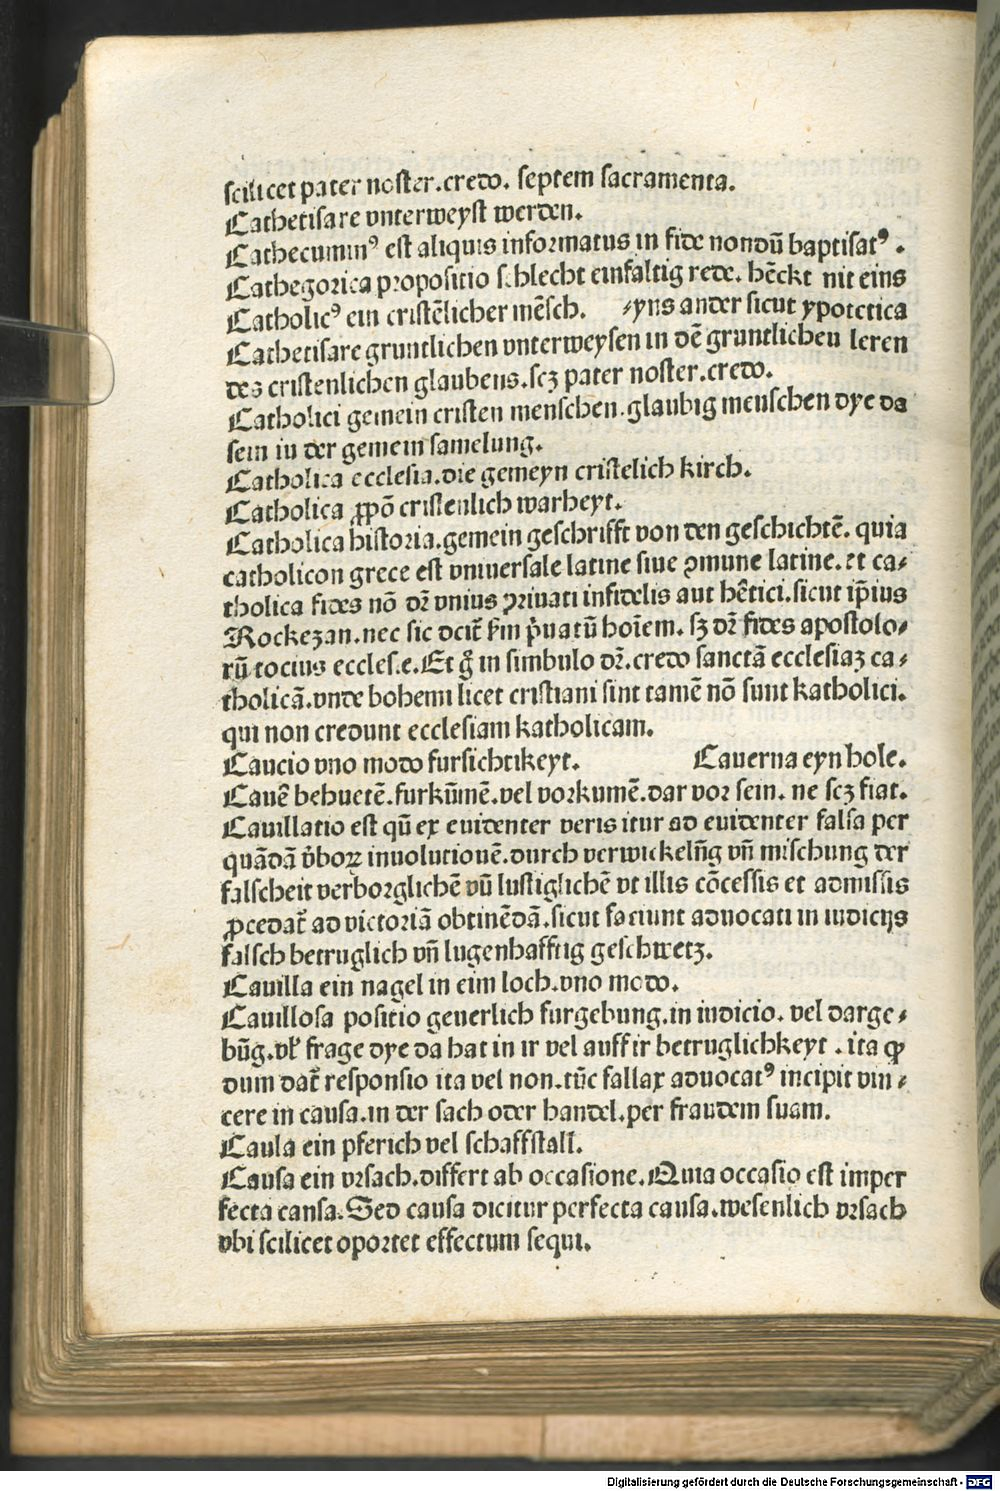 scilicet pater noster.credo. septem sacramenta.
Cathetisare vnterweyst werden.
Cathecuminꝰ est aliquis informatus in fide nondū baptisatꝰ.
Cathegorica propositio schlecht einfaltig rede. hēckt nit eins
Catholicꝰ ein cristēlicher mēsch. ⸗yns ander sicut ypotetica
Cathetisare gruntlichen vnterweysen in dē gruntlichen leren
des cristenlichen glaubens.scꝫ pater noster.credo.
Catholici gemein cristen menschen.glaubig menschen dye da
sein in der gemein samelung.
Catholica ecclesia.die gemeyn cristelich kirch.
Catholica ꝓpō cristenlich warheyt.
Catholica historia.gemein geschrifft von den geschichtē. quia
catholicon grece est vniuersale latine siue ꝯmune latine. et ca⸗
tholica fides nō dr̄ vnius priuati infidelis aut hētici.sicut ip̄ius
Rockezan.nec sic dcit̄ ẜm p̄uatū hoīem. sꝫ dr̄ fides apostolo⸗
rū tocius ecclesie.Et gͦ in simbulo dr̄.credo sanctā ecclesiaꝫ ca⸗
tholicā.vnde bohemi licet cristiani sint tamē nō sunt katholici.
qui non credunt ecclesiam katholicam.
Caucio vno modo fursichtikeyt. Cauerna eyn hole.
Cauē behuetē.furkūmē.vel vorkumē.dar vor sein. ne scꝫ fiat.
Cauillatio est qū ex euidenter veris itur ad euidenter falsa per
quādā v̄boꝝ inuolutionē.durch verwickelūg vn̄ mischung der
falscheit verborglichē vn̄ lustiglichē vt illis cōcessis et admissis
ꝓcedat̄ ad victoriā obtinēdā.sicut faciunt aduocati in iudicijs
falsch betruglich vn̄ lugenhafftig geschwetz.
Cauilla ein nagel in eim loch.vno modo.
Cauillosa positio geuerlich furgebung.in iudicio. vel darge⸗
būg.vl̄ frage dye da hat in ir vel auff ir betruglichkeyt. ita ꝙ
dum dat̄ responsio ita vel non.tūc fallax aduocatꝰ incipit vin⸗
cere in causa.in der sach oder handel.per fraudem suam.
Caula ein pferich vel schaffstall.
Causa ein vrsach.differt ab occasione.Quia occasio est imper
fecta causa.Sed causa dicitur perfecta causa.wesenlich vrsach
vbi scilicet oportet effectum sequi.
Digitalisierung gefördert durch die Deutsche Forschungsgemeinschaft - DFG